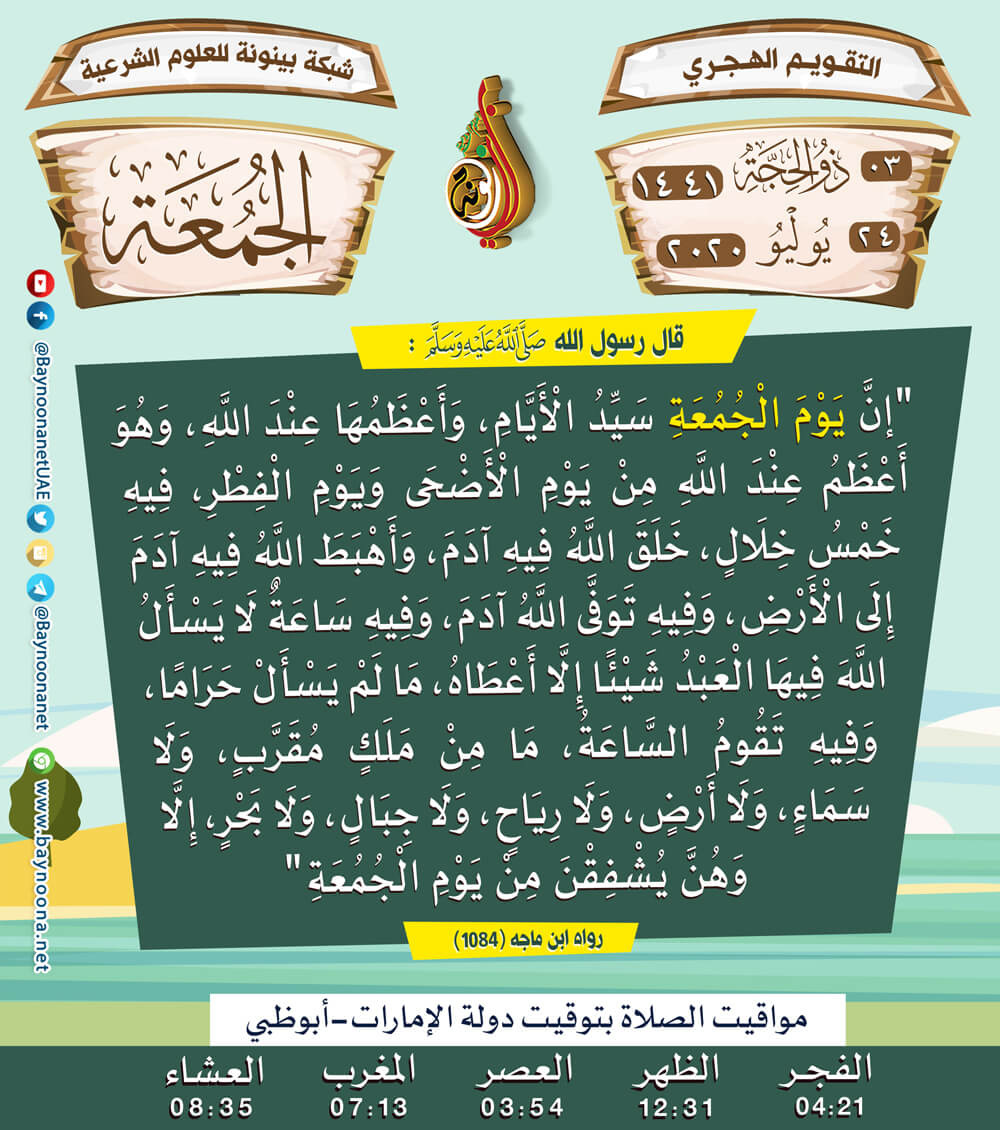 التقويم الهجري
شبكة بينونة للعلوم الشرعية
٠٣ ذُو الحِجَّة ١٤٤١
٢٤ يُولْيُو ٢٠٢٠
الجُمُعَة
قال رسول الله صَلَّى اللَّهُ عَلَيْهِ وَسَلَّمَ :
"إِنَّ يَوْمَ الْجُمُعَةِ سَيِّدُ الْأَيَّامِ، وَأَعْظَمُهَا عِنْدَ اللَّهِ، وَهُوَ
أَعْظَمُ عِنْدَ اللَّهِ مِنْ يَوْمِ الْأَضْحَى وَيَوْمِ الْفِطْرِ، فِيهِ
خَمْسُ خِلَالٍ، خَلَقَ اللَّهُ فِيهِ آدَمَ، وَأَهْبَطَ اللَّهُ فِيهِ آدَمَ
إِلَى الْأَرْضِ، وَفِيهِ تَوَفَّى اللَّهُ آدَمَ، وَفِيهِ سَاعَةٌ لَا يَسْأَلُ
اللَّهَ فِيهَا الْعَبْدُ شَيْئًا إِلَّا أَعْطَاهُ، مَا لَمْ يَسْأَلْ حَرَامًا،
وَفِيهِ تَقُومُ السَّاعَةُ، مَا مِنْ مَلَكٍ مُقَرَّبٍ، وَلَا
سَمَاءٍ، وَلَا أَرْضٍ، وَلَا رِيَاحٍ، وَلَا جِبَالٍ، وَلَا بَحْرٍ، إِلَّا
وَهُنَّ يُشْفِقْنَ مِنْ يَوْمِ الْجُمُعَةِ"
رواه ابن ماجه (1084)
@BaynoonanetUAE
@Baynoonanet
www.baynoona.net
مواقيت الصلاة بتوقيت دولة الإمارات-أبوظبي
الفجر الظهر العصر المغرب العشاء
04:21 12:31 03:54 07:13 08:35